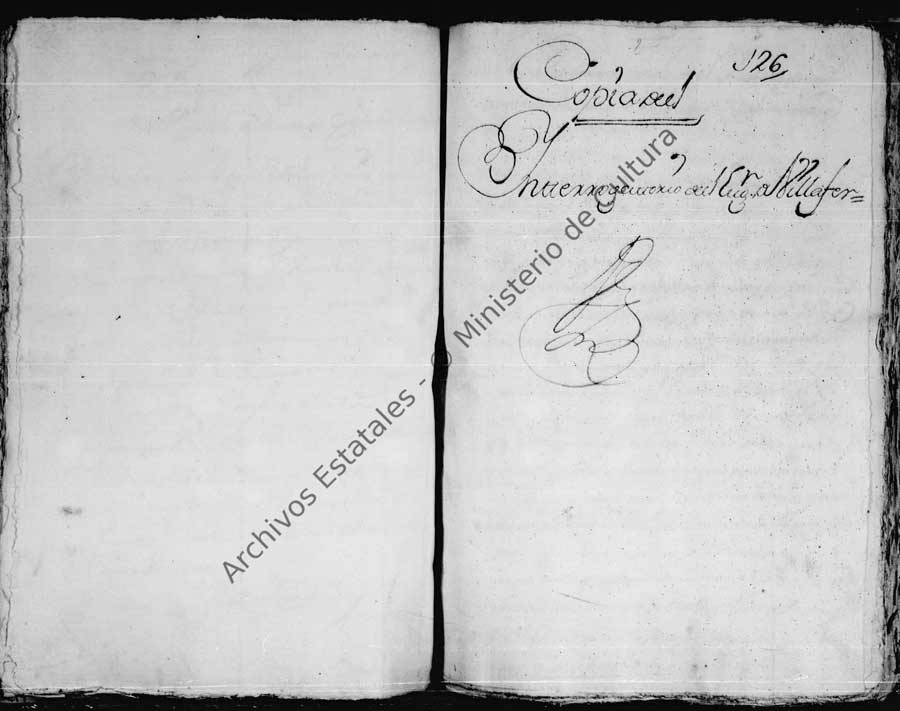 126
Copia del
Interrogatorio del Lugr. d Villafer=
Archivos Estatales - © Ministerio de Cultura